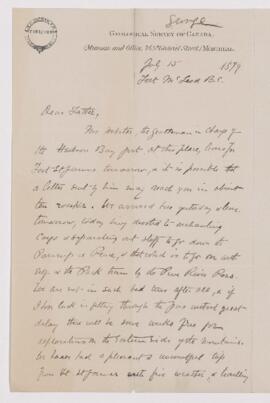 George
GEOLOGICAL SURVEY OF CANADA,
Museum and Office, 76 St. Gabriel Street, MONTREAL.
July 15 1879
Fort McLeod B.C.
Dear Father,
Mr the gentleman in charge of
the Hudson Bay post at this place, leaves for
Fort St James tomorrow, & it is possible that
a letter sent by him may reach you in about
two weeks. We arrived here yesterday & leave
tomorrow, today being devoted to
cargo & separating out stuff to go down to
by the River, & that which is to go on with
the Pack train by the Pine River Pass.
We are not in such bad time after all, & if
I have luck in getting through the Pass without great
delay there will be some weeks free for
exploration on the Eastern side of the mountains.
We have had a pleasant & uneventful trip
from St James with fine weather, & travelling